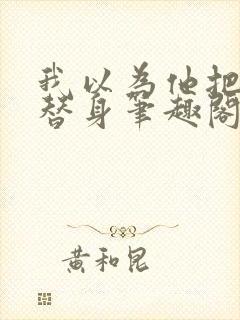 我以为他把
替身笔趣阁
黄和昆